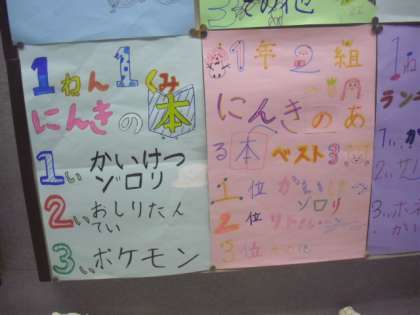 3その他
1ねん1くみ
にんきの本
1いかいけつ
ゾロリ
2いおしりたん
てい
3いポケモン
1年2組
にんきのあ
る本ベスト3
1位かいけつ
ゾロリ
2位リトル
3位その他
1ね
ラン